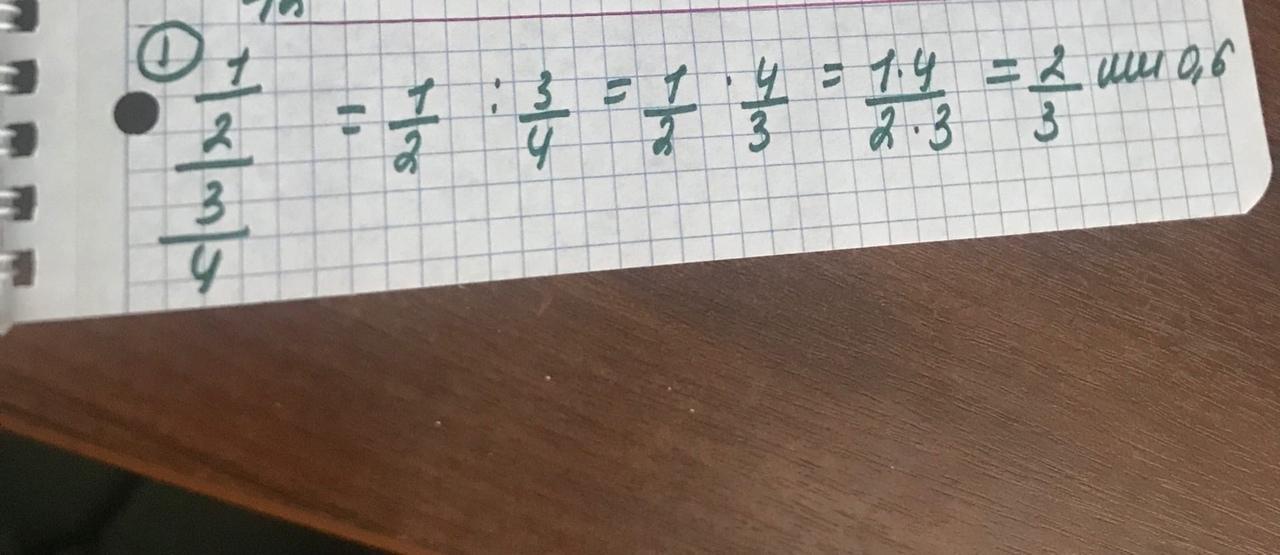 1
1/2/3/4 = 1/2 : 3/4 = 1/2 · 4/3 = 1·4/2·3 = 2/3 или 0,6